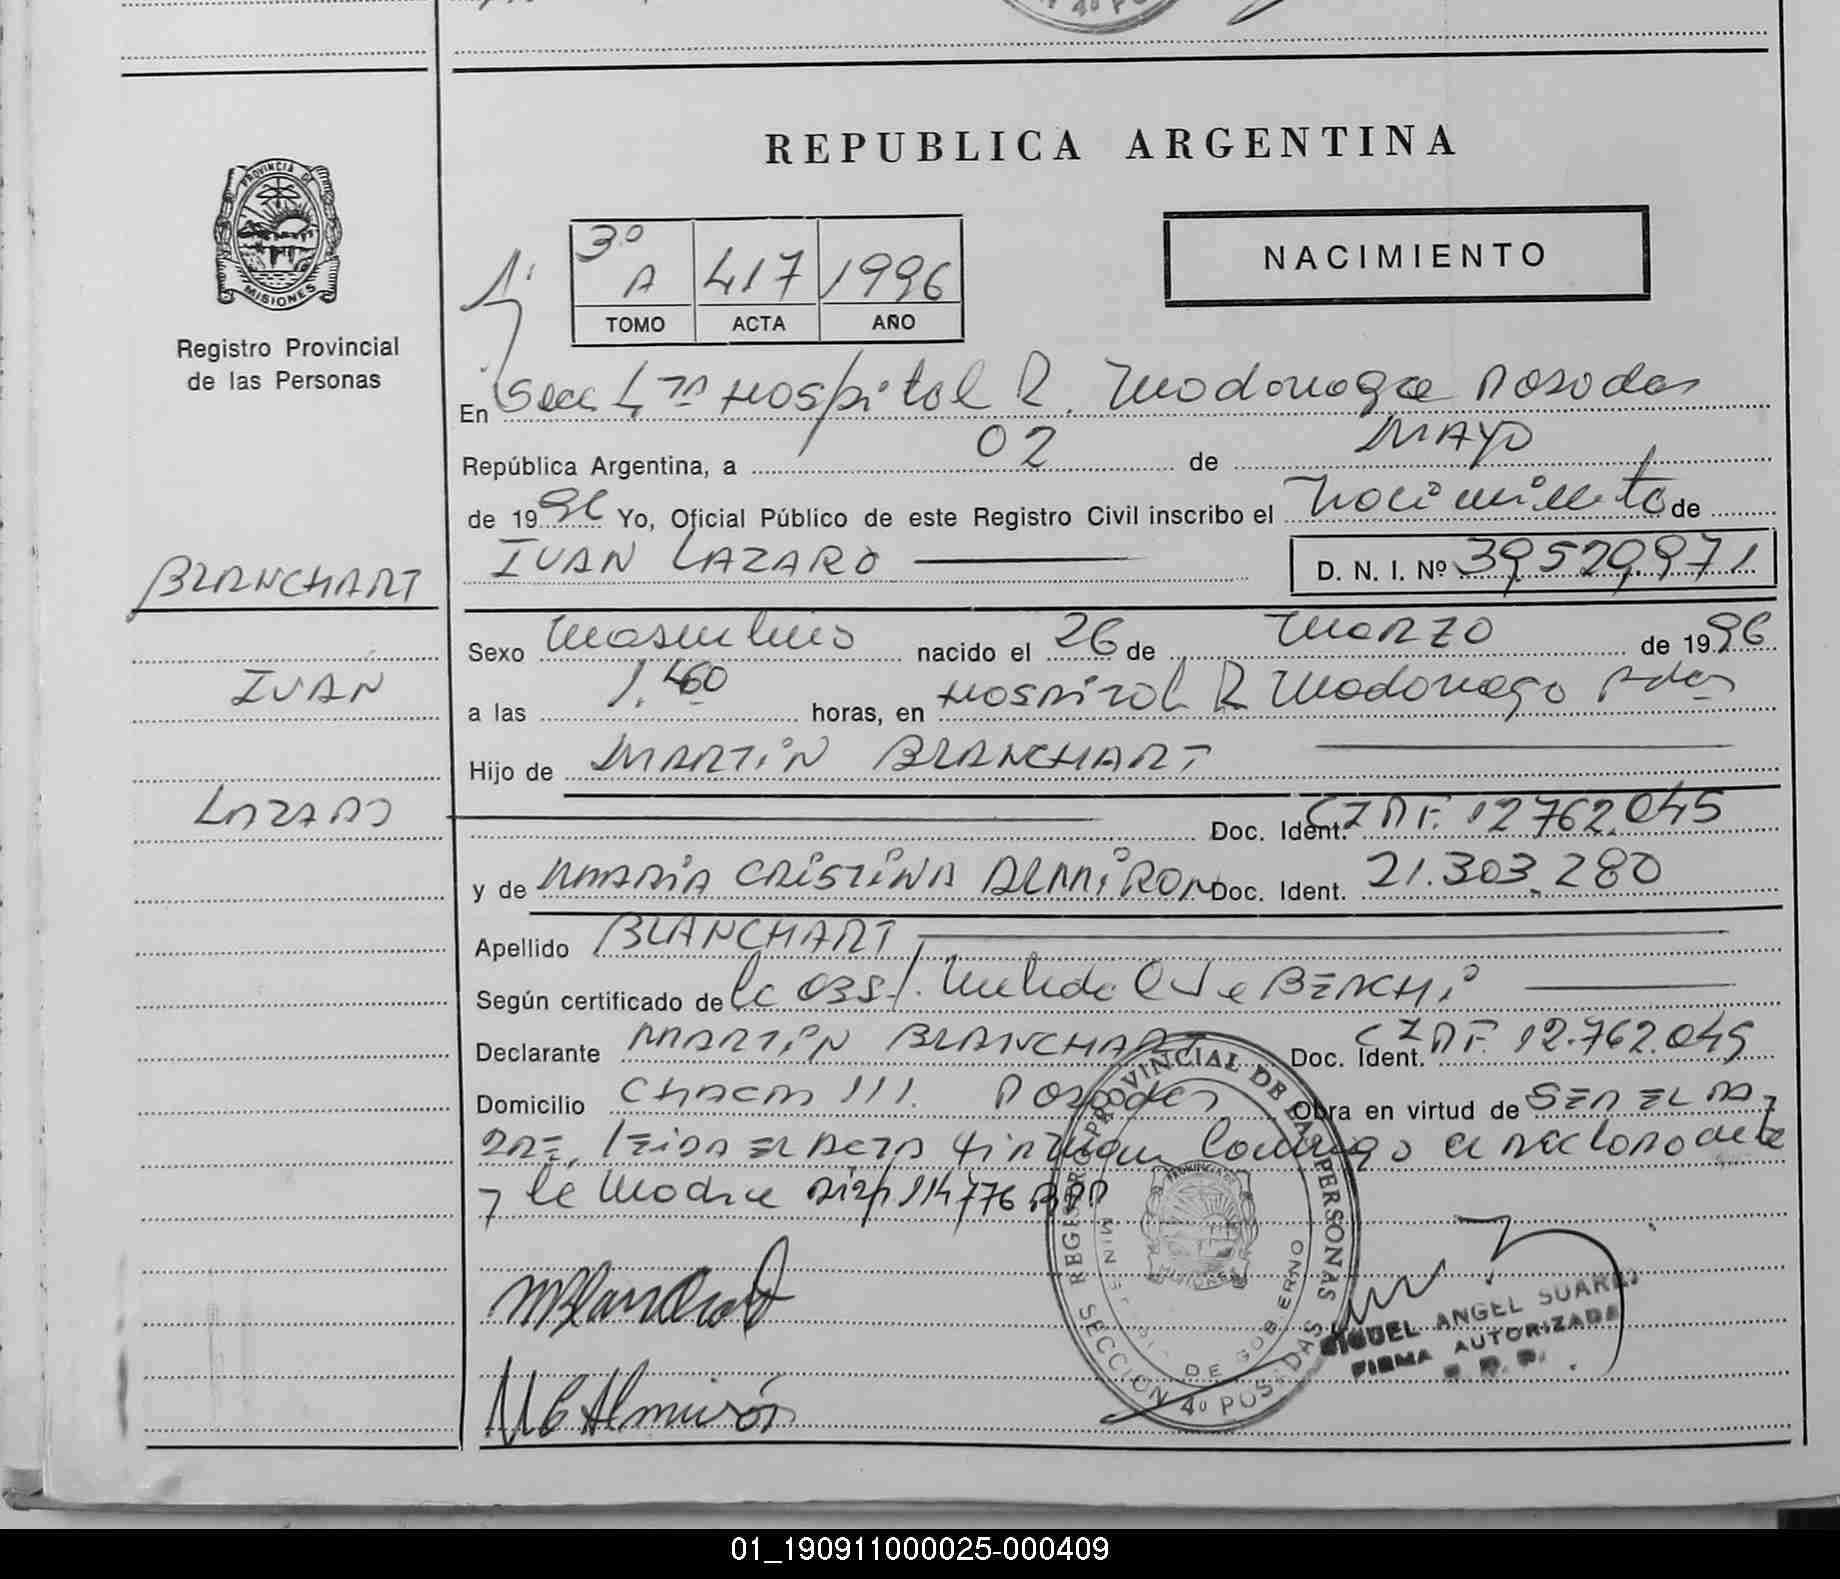 REPUBLICA ARGENTINA
PROVINCIA DE
MISIONES
Registro Provincial
de las Personas
3º A 417 1996
TOMO ACTA AÑO
NACIMIENTO
En Secc 4ta Hospital R. Madariaga Posadas
República Argentina, a 02 de MAYO
de 1996 Yo, Oficial Público de este Registro Civil inscribo el Nacimiento de
IVAN LAZARO D. N. I. Nº 39.529.971
BLANCHART
IVAN
LAZARO
Sexo Masculino nacido el 26 de Marzo de 1996
a las horas, en Hospital R Madariaga Pdas
Hijo de MARTIN BLANCHART
Doc. Ident. CIPF. 12762.045
y de MARIA CRISTINA ALMIRON Doc. Ident. 21.303.280
Apellido BLANCHART
Según certificado de la Obst.
Declarante MARTIN BLANCHART Doc. Ident. CIPF. 12.762.045
Domicilio CHACRA 111. Posadas Obra en virtud de SER EL PA
DRE. LEIDA EL ACTA firman conmigo el declarante
y la Madre
MBlanchart
MCAlmirón
REGISTRO PROVINCIAL DE LAS PERSONAS
SECCION 4º POSADAS
MINISTERIO DE GOBIERNO
PROVINCIA DE
MISIONES
MIGUEL ANGEL SUAREZ
FIRMA AUTORIZADA
01_190911000025-000409